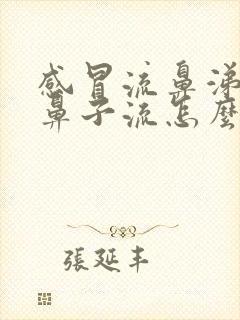 感冒流鼻涕
鼻子流怎麼
張延丰